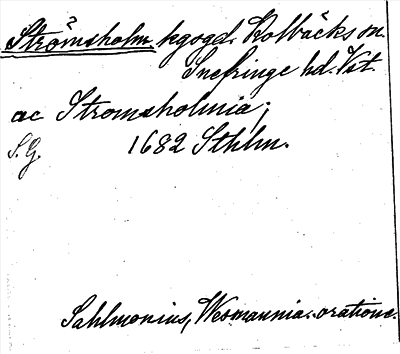 Strömsholm kgsgd. Kolbäcks sn.
Snefringe hd. Vst.
ac Stromsholmia;
S.G. 1682 Sthlm.
Sahlmonius, Wesmannia.. oratione.